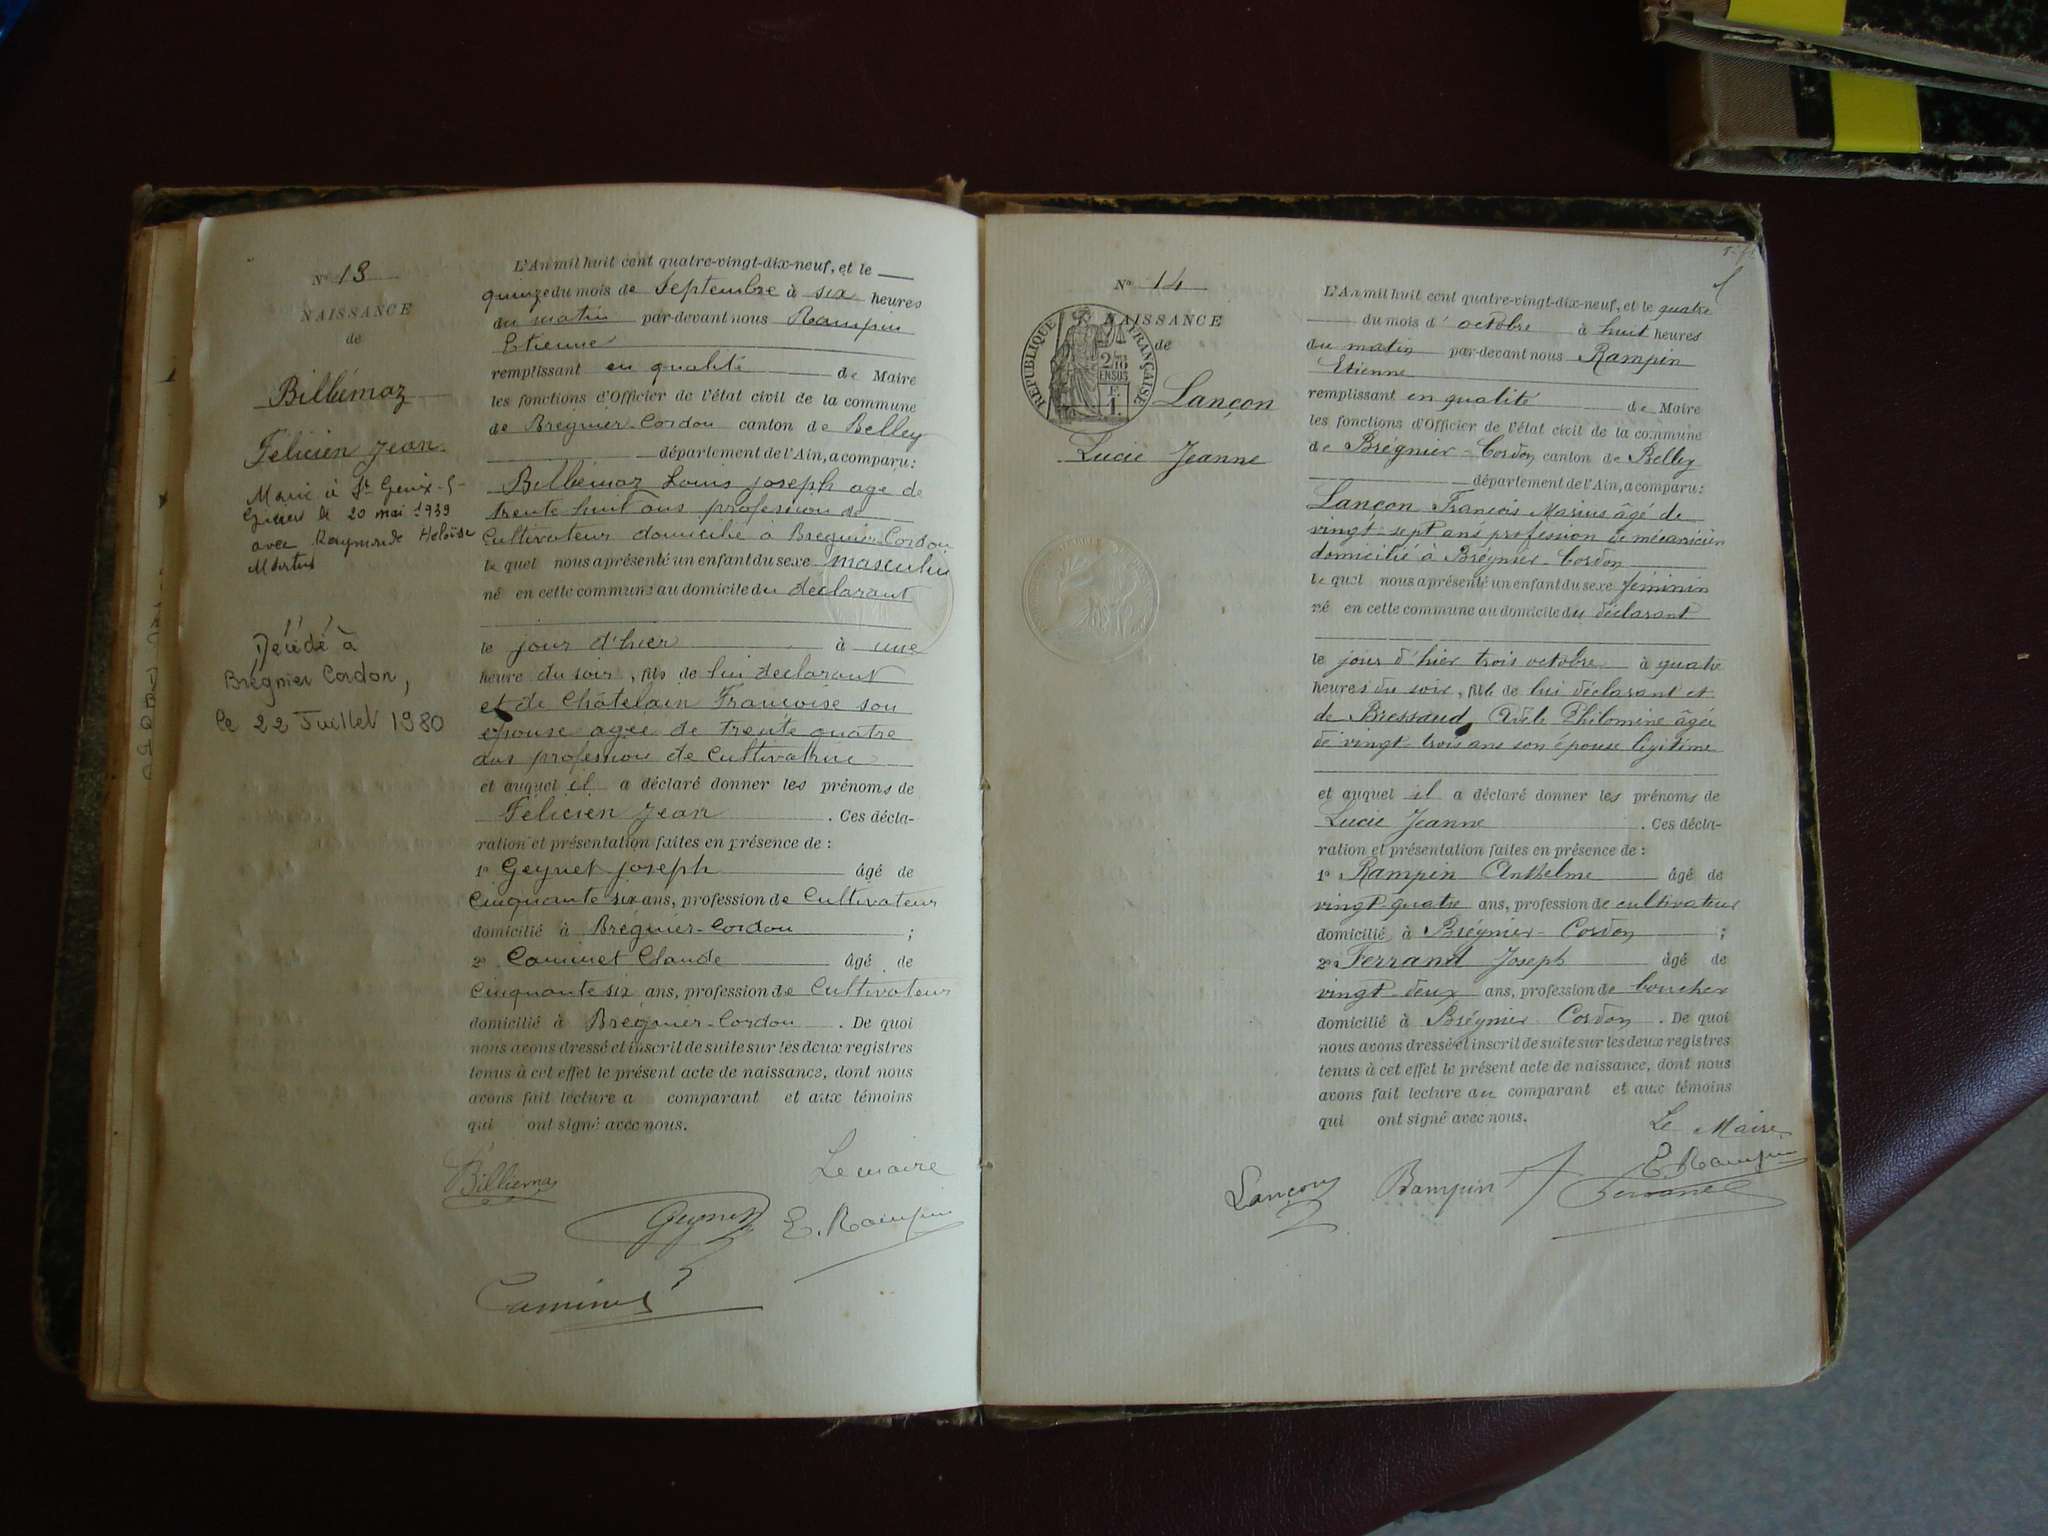 N° 13
NAISSANCE
de
Billiémaz
Félicien Jean
Marié à St Genix-s-
Guiers le 20 mai 1939
avec Raymonde Héloïse
Décédé à
Brégnier Cordon,
le 22 Juillet 1980
L'An mil huit cent quatre-vingt-dix-neuf, et le
quinze du mois de Septembre à six heures
du matin par-devant nous Rampin
Etienne
remplissant en qualité de Maire
les fonctions d'Officier de l'état civil de la commune
de Brégnier-Cordon canton de Belley
département de l'Ain, a comparu:
Billiémaz Louis Joseph age de
trente huit ans profession de
Cultivateur domicilié à Bregnier-Cordon
lequel nous a présenté un enfant du sexe masculin
né en cette commune au domicile du déclarant
le jour d'hier à une
heure du soir, fils de lui declarant
et de Châtelain Francoise son
épouse agee de trente quatre
ans profession de Cultivatrice
et auquel il a déclaré donner les prénoms de
Félicien Jean. Ces décla-
ration et présentation faites en présence de :
1° Geynet Joseph âgé de
Cinquante six ans, profession de Cultivateur
domicilié à Brégnier-Cordon ;
2° Caminet Claude âgé de
Cinquante six ans, profession de Cultivateur
domicilié à Bregnier-Cordon. De quoi
nous avons dressé et inscrit de suite sur les deux registres
tenus à cet effet le présent acte de naissance, dont nous
avons fait lecture a comparant et aux témoins
qui ont signé avec nous.
Le maire
Geynet E. Rampin
Caminet
N° 14
NAISSANCE
de
RÉPUBLIQUE FRANÇAISE
2/10
EN SUS
F.
1.
Lançon
Lucie Jeanne
L'An mil huit cent quatre-vingt-dix-neuf, et le quatre
du mois d'octobre à huit heures
du matin par-devant nous Rampin
Etienne
remplissant en qualité de Maire
les fonctions d'Officier de l'état civil de la commune
de Brégnier-Cordon canton de Belley
département de l'Ain, a comparu:
Lançon François Marius âgé de
vingt-sept ans profession de mécanicien
domicilié à Brégnier-Cordon
lequel nous a présenté un enfant du sexe féminin
né en cette commune au domicile du déclarant
le jour d'hier trois octobre à quatre
heures du soir, fille de lui déclarant et
de Bressaud, Adèle Philomine âgée
de vingt-trois ans son épouse légitime
et auquel il a déclaré donner les prénoms de
Lucie Jeanne. Ces décla-
ration et présentation faites en présence de :
1° Rampin Anthelme âgé de
vingt-quatre ans, profession de cultivateur
domicilié à Brégnier-Cordon ;
2° Ferrand Joseph âgé de
vingt-deux ans, profession de boucher
domicilié à Brégnier Cordon. De quoi
nous avons dressé et inscrit de suite sur les deux registres
tenus à cet effet le présent acte de naissance, dont nous
avons fait lecture au comparant et aux témoins
qui ont signé avec nous.
Le Maire
E. Rampin
Lançon Rampin Ferrand